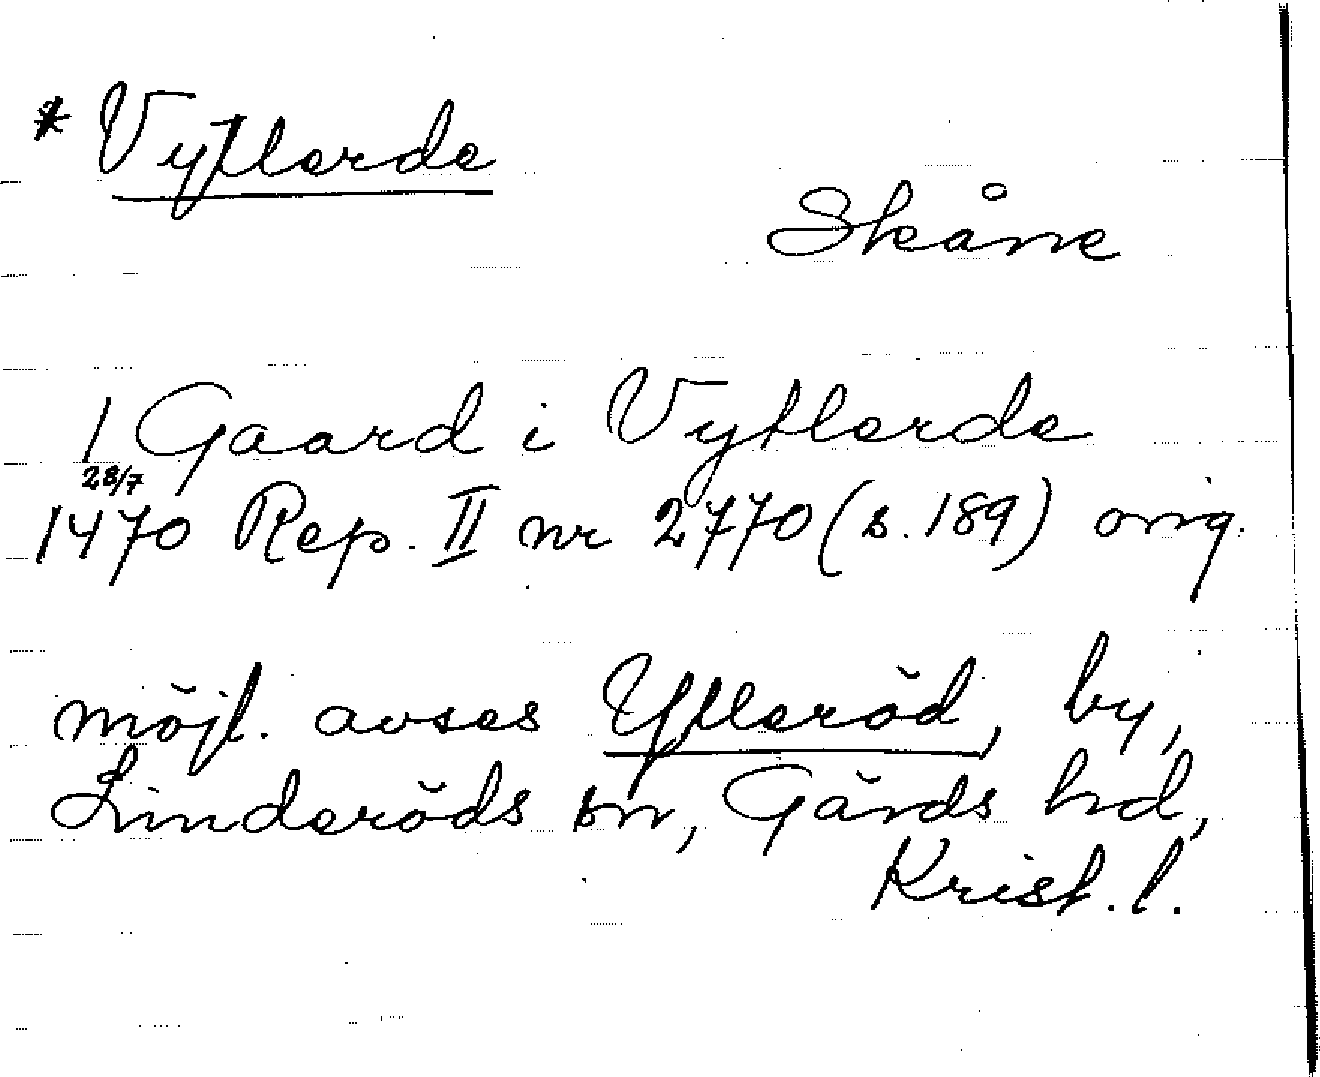 * Vytlerde
Skåne
1 Gaard i Vytlerde
28/7
1470 Rep. II nr 2770 (s. 189) orig.
möjl. avses Ylleröd, by,
Linderöds sn, Gärds hd,
Krist. l.